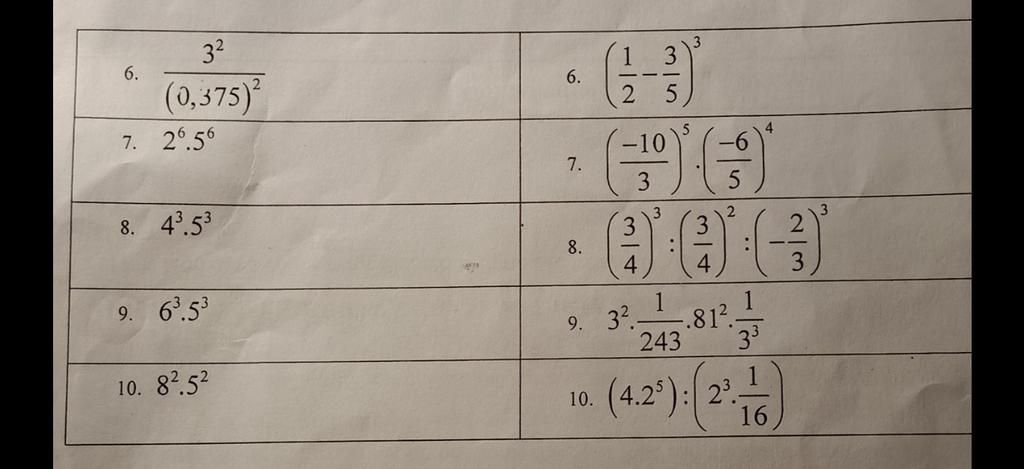 6. 3² / (0,375)²
6. (1/2 − 3/5)³
7. 2⁶.5⁶
7. (−10/3)⁵.(−6/5)⁴
8. 4³.5³
8. (3/4)³:(3/4)²:(−2/3)³
9. 6³.5³
9. 3².1/243.81².1/3³
10. 8².5²
10. (4.2⁵):(2³.1/16)